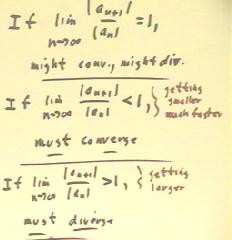 If lim n→∞ |aₙ₊₁|/|aₙ| = 1,
might conv., might div.
If lim n→∞ |aₙ₊₁|/|aₙ| < 1, } getting smaller much faster
must converge
If lim n→∞ |aₙ₊₁|/|aₙ| > 1, { getting larger
must diverge